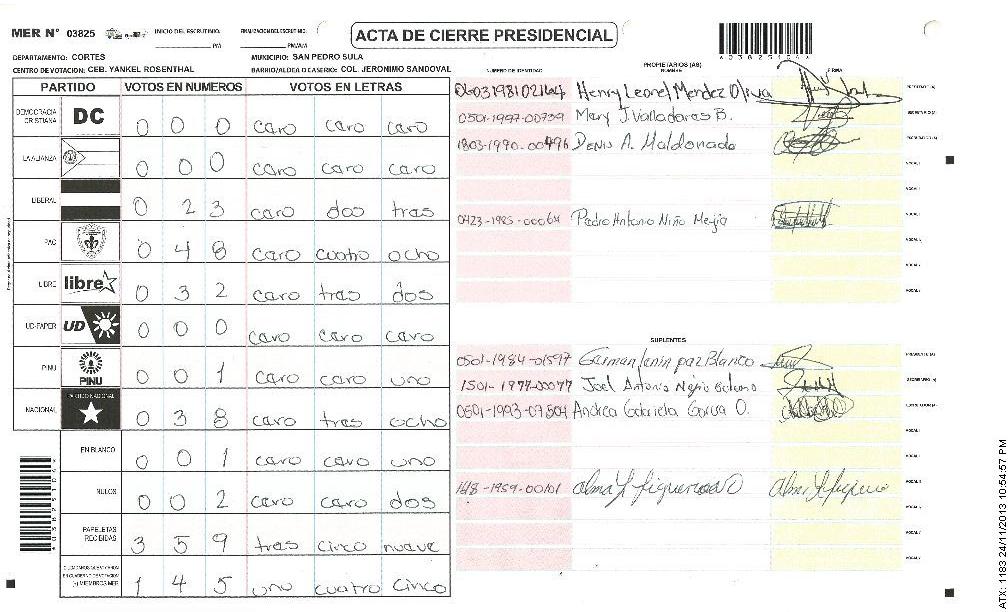 MER N° 03825 INICIO DEL ESCRUTINIO: FINALIZACION DEL ESCRUTINIO: ACTA DE CIERRE PRESIDENCIAL
PM PM/AM
DEPARTAMENTO: CORTES MUNICIPIO: SAN PEDRO SULA
CENTRO DE VOTACION: CEB. YANKEL ROSENTHAL BARRIO/ALDEA O CASERIO: COL. JERONIMO SANDOVAL
PARTIDO VOTOS EN NUMEROS VOTOS EN LETRAS
DEMOCRACIA CRISTIANA DC 0 0 0 caro caro caro
LA ALIANZA 0 0 0 caro caro caro
LIBERAL 0 2 3 caro dos tras
PAC 0 4 8 caro cuatro ocho
LIBRE libre 0 3 2 caro tras dos
UD-FAPER UD 0 0 0 caro caro caro
PINU PINU 0 0 1 caro caro uno
NACIONAL PARTIDO NACIONAL 0 3 8 caro tras ocho
EN BLANCO 0 0 1 caro caro uno
NULOS 0 0 2 caro caro dos
PAPELETAS RECIBIDAS 3 5 9 tras cinco nuave
CIUDADANOS QUE VOTARON EN CUADERNO DE VOTACION (+) MIEMBROS MER 1 4 5 uno cuatro cinco
PROPIETARIOS (AS)
NUMERO DE IDENTIDAD NOMBRE FIRMA
Henry Leonel Mendez Oliva PRESIDENTE (A)
0501-1997-00739 Mery J. Valladares B. SECRETARIO (A)
1803-1990-00496 Denis A. Maldonado ESCRUTADOR (A)
0423-1985-00064 Pedro Antonio Niño Mejia
SUPLENTES
0501-1984-01597 German Lenin paz Blanco PRESIDENTE (A)
1501-1977-00077 Joel Antonio SECRETARIO (A)
0501-1993-07804 Andrea Gabriela Garcia O. ESCRUTADOR (A)
Alma Y Figueroa O
ATX: 1183 24/11/2013 10:54:57 PM